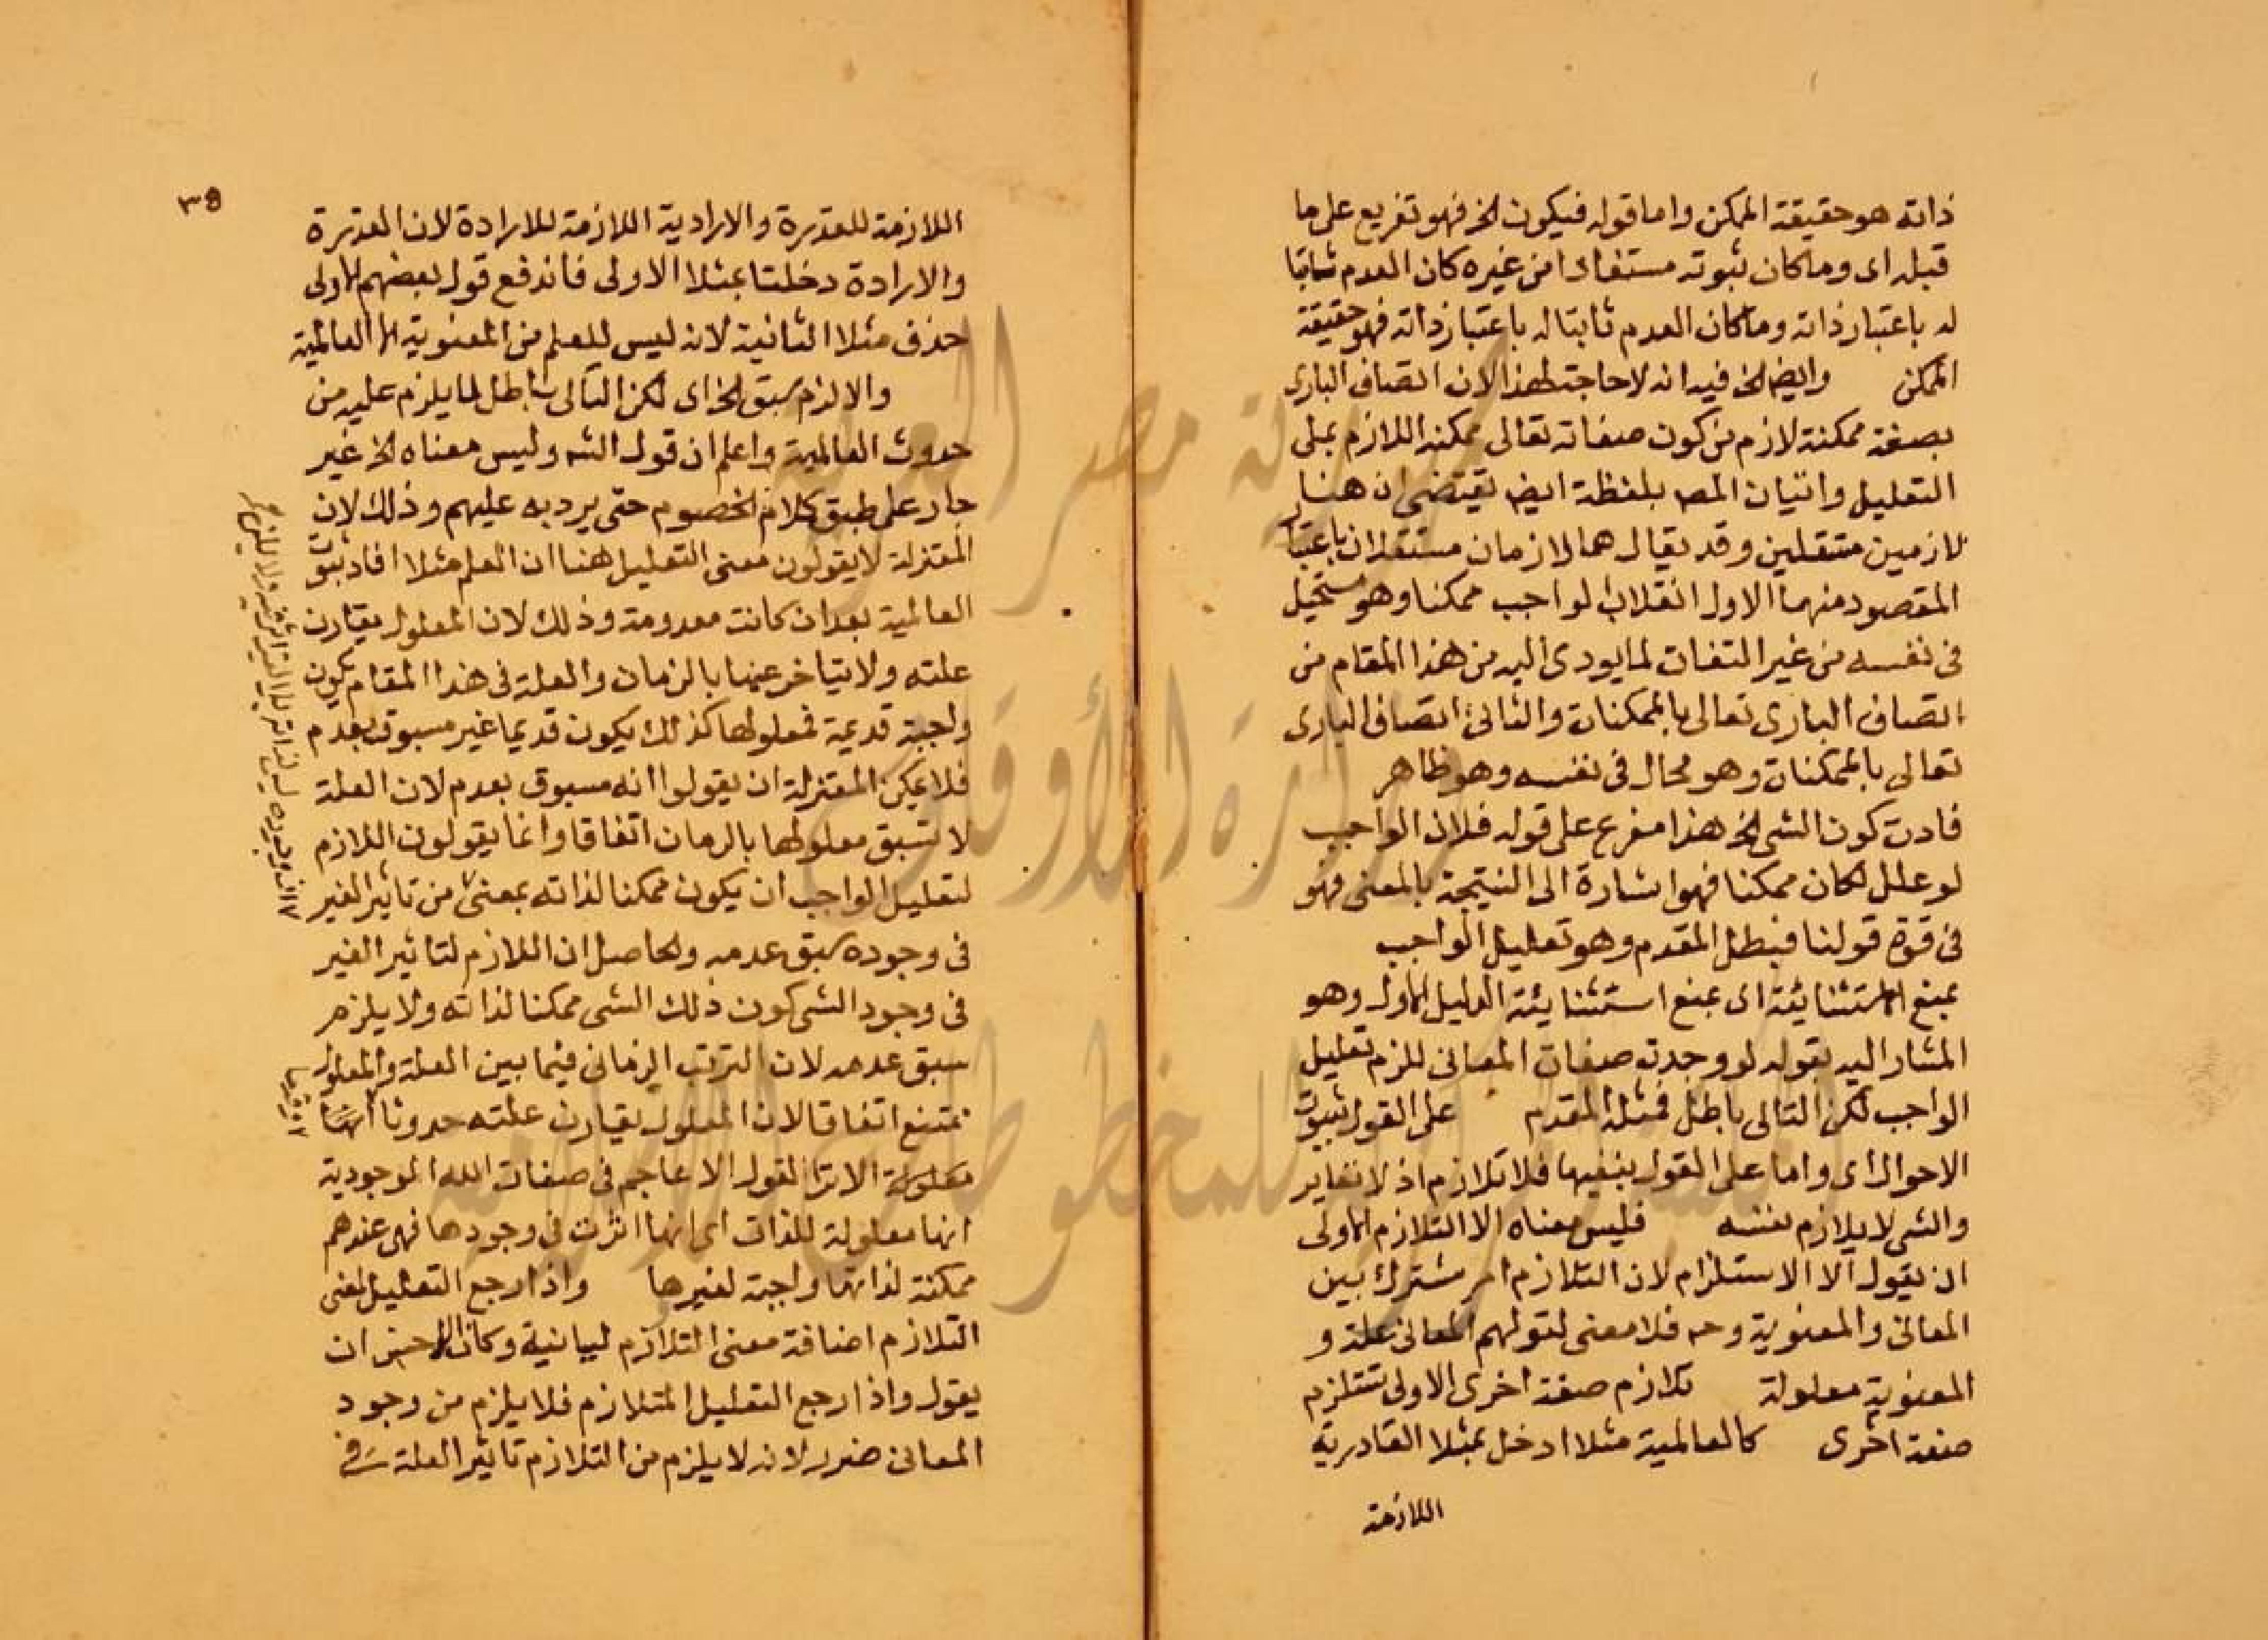 ذاته هو حقيقة الممكن واما قوله فيكون الخ فهو تفريع على ما
قبله اى وما كان ثبوته مستفادا من غيره كان العدم ثابتا
له باعتبار ذاته وما كان العدم ثابتا له باعتبار ذاته فهو حقيقة
الممكن وايضا الخ فيه انه لا حاجة لهذا لان اتصاف البارى
بصفة ممكنة لازم من كون صفاته تعالى ممكنه اللازم على
التعليل واتيان المص بلفظة ايضا يقتضى ان هنا
لازمين مستقلين وقد يقال هما لازمان مستقلان باعتبار
المقصود منهما الاول انقلاب الواجب ممكنا وهو مستحيل
فى نفسه من غير التفات لما يودى اليه من هذا المقام من
اتصاف البارى تعالى بالممكنات والثانى اتصاف البارى
تعالى بالممكنات وهو محال فى نفسه وهو ظاهر
فادت كون الشى الخ هذا مفرع على قوله فلان الواجب
لو علل لكان ممكنا فهو اشارة الى النتيجة بالمعنى فهو
فى قوة قولنا فبطل المقدم وهو تعليل الواجب
بمنع الاستثنائية اى بمنع استثنائية الدليل الاول وهو
المشار اليه بقوله لو وجدت صفات المعانى للزم تعليل
الواجب لكن التالى باطل فمثله المقدم على القول بثبوت
الاحوال اى واما على القول بنفيها فلا تلازم اذ لا تغاير
والشى لا يلازم نفسه فليس معناه الا التلازم الاولى
ان يقول الا الاستلزام لان التلازم امر مشترك بين
المعانى والمعنوية وحـ فلا معنى لقولهم المعانى علة و
المعنوية معلولة تلازم صفة اخرى الاولى تستلزم
صفة اخرى كالعالمية مثلا ادخل بمثلا القادرية
اللازمة
٣٥
اللازمة للقدرة والارادية اللازمة للارادة لان القدرة
والارادة دخلتا بمثلا الاولى فاندفع قول بعضهم الاولى
حذف مثلا الثانية لانه ليس للعلم من المعنوية الا العالمية
والا لزم سبق الخ اى لكن التالى باطل لما يلزم عليه من
حدوث العالمية واعلم ان قول الشـ وليس معناه الخ غير
جار على طبق كلام الخصوم حتى يرد به عليهم وذلك لان
المعتزلة لا يقولون معنى التعليل هنا ان العلم مثلا افاد ثبوت
العالمية بعد ان كانت معدومة وذلك لان المعلول يقارن
علته ولا يتاخر عنها بالزمان والعلة فى هذا المقام تكون
واجبة قديمة فمعلولها كذلك يكون قديما غير مسبوق بعدم
فلا يمكن المعتزلة ان يقولوا انه مسبوق بعدم لان العلة
لا تسبق معلولها بالزمان اتفاقا وانما يقولون اللازم
لتعليل الواجب ان يكون ممكنا لذاته بمعنى من تاثير الغير
فى وجوده سبق عدمه والحاصل ان اللازم لتاثير الغير
فى وجود الشى كون ذلك الشى ممكنا لذاته ولا يلزم
سبق عدمه لان الترتب الزمانى فيما بين العلة والمعلول
ممتنع اتفاقا لان المعلول يقارن علته حدوثا
الا ترا لقول الاعاجم فى صفات الله الوجودية
انها معلولة للذات اى انها اثرت فى وجودها فهى عندهم
ممكنة لذاتها واجبة لغيرها واذا رجع التعليل لمعنى
التلازم اضافة معنى التلازم لبيانية وكان الاحسن ان
يقول واذا رجع التعليل المتلازم فلا يلزم من وجود
المعانى ضرر لانه لا يلزم من التلازم تاثير العلة فى